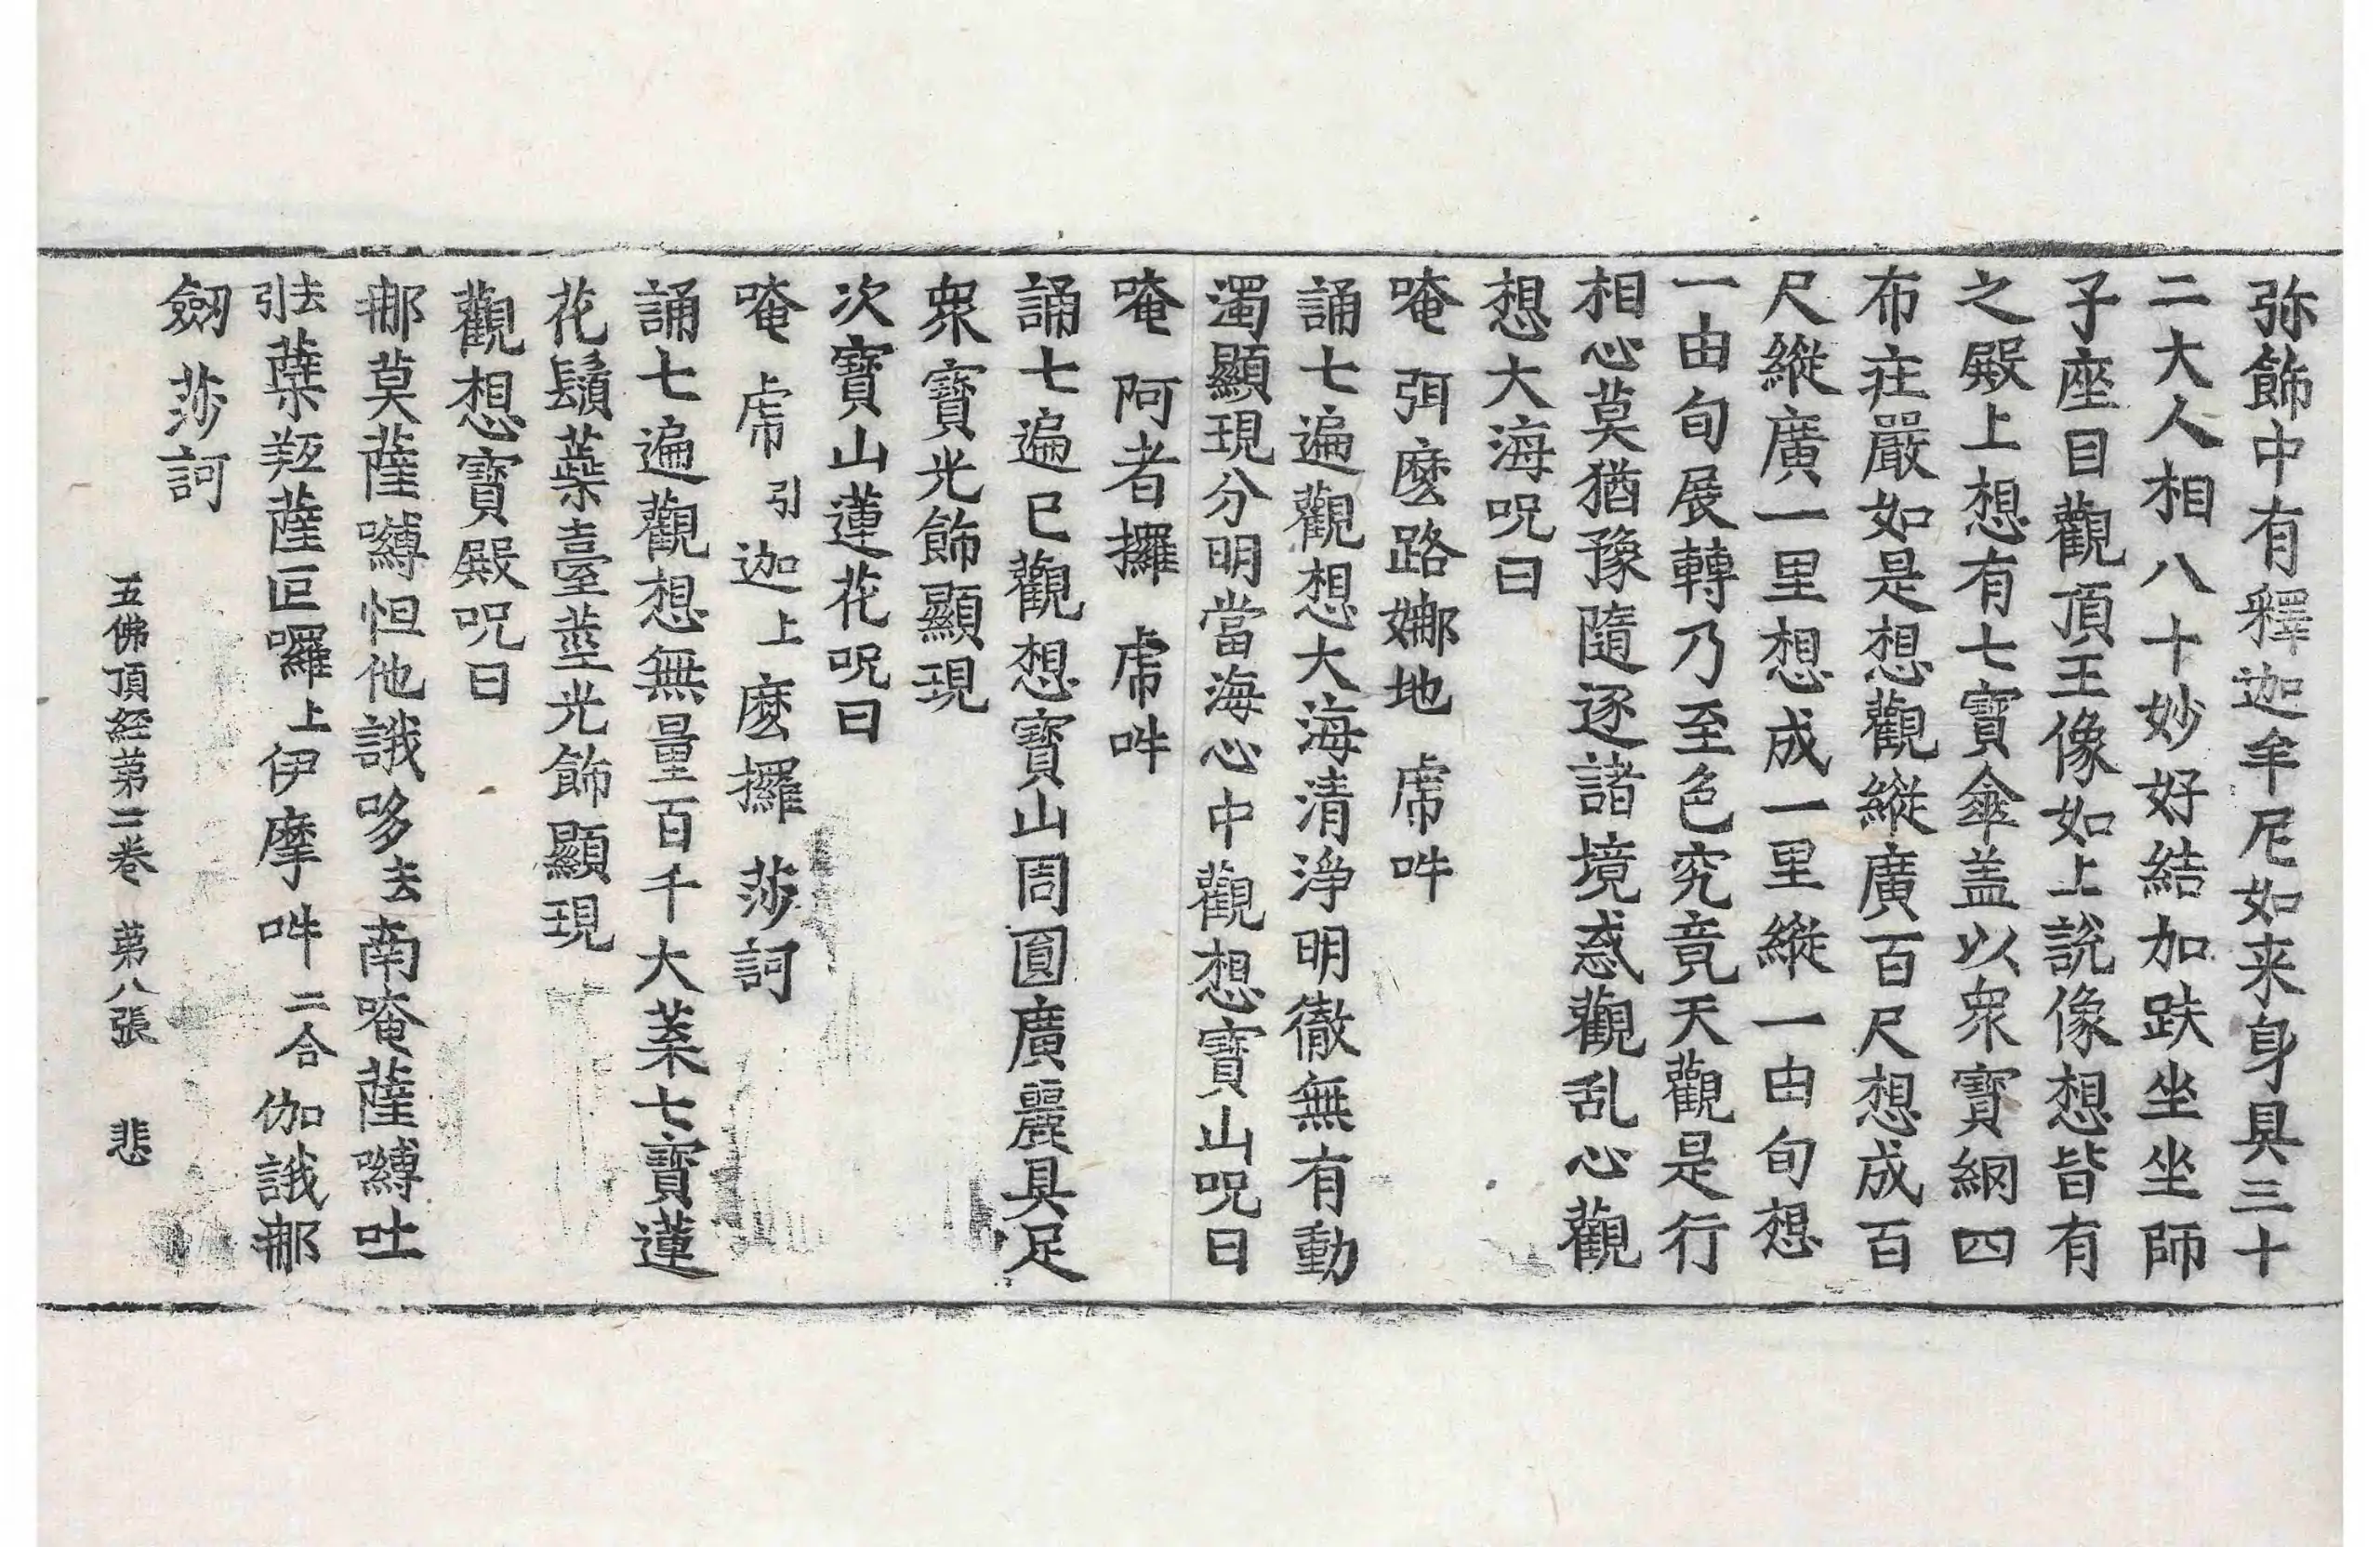 弥飾中有釋迦牟尼如来身具三十
二大人相八十妙好結加趺坐坐師
子座目觀頂王像如上說像想皆有
之殿上想有七寶傘盖以衆寶網四
布莊嚴如是想觀縱廣百尺想成百
尺縱廣一里想成一里縱一由旬想
一由旬展轉乃至色究竟天觀是行
相心莫猶豫隨逐諸境惑觀乱心觀
想大海呪曰
唵 弭麽路娜地 虎𤙖
誦七遍觀想大海清淨明徹無有動
濁顯現分明當海心中觀想寶山呪曰
唵 阿者攞 虎𤙖
誦七遍已觀想寶山周圓廣麗具足
衆寶光飾顯現
次寶山蓮花呪曰
唵 虎引迦上麽攞 莎訶
誦七遍觀想無量百千大葉七寶蓮
花鬚蘂臺莖光飾顯現
觀想寶殿呪曰
那莫薩嚩怛他誐哆去南唵薩嚩吐
去引蘖羝薩叵囉上伊摩𤙖二合伽誐那
劒 莎訶
五佛頂経第二卷 第八張 悲